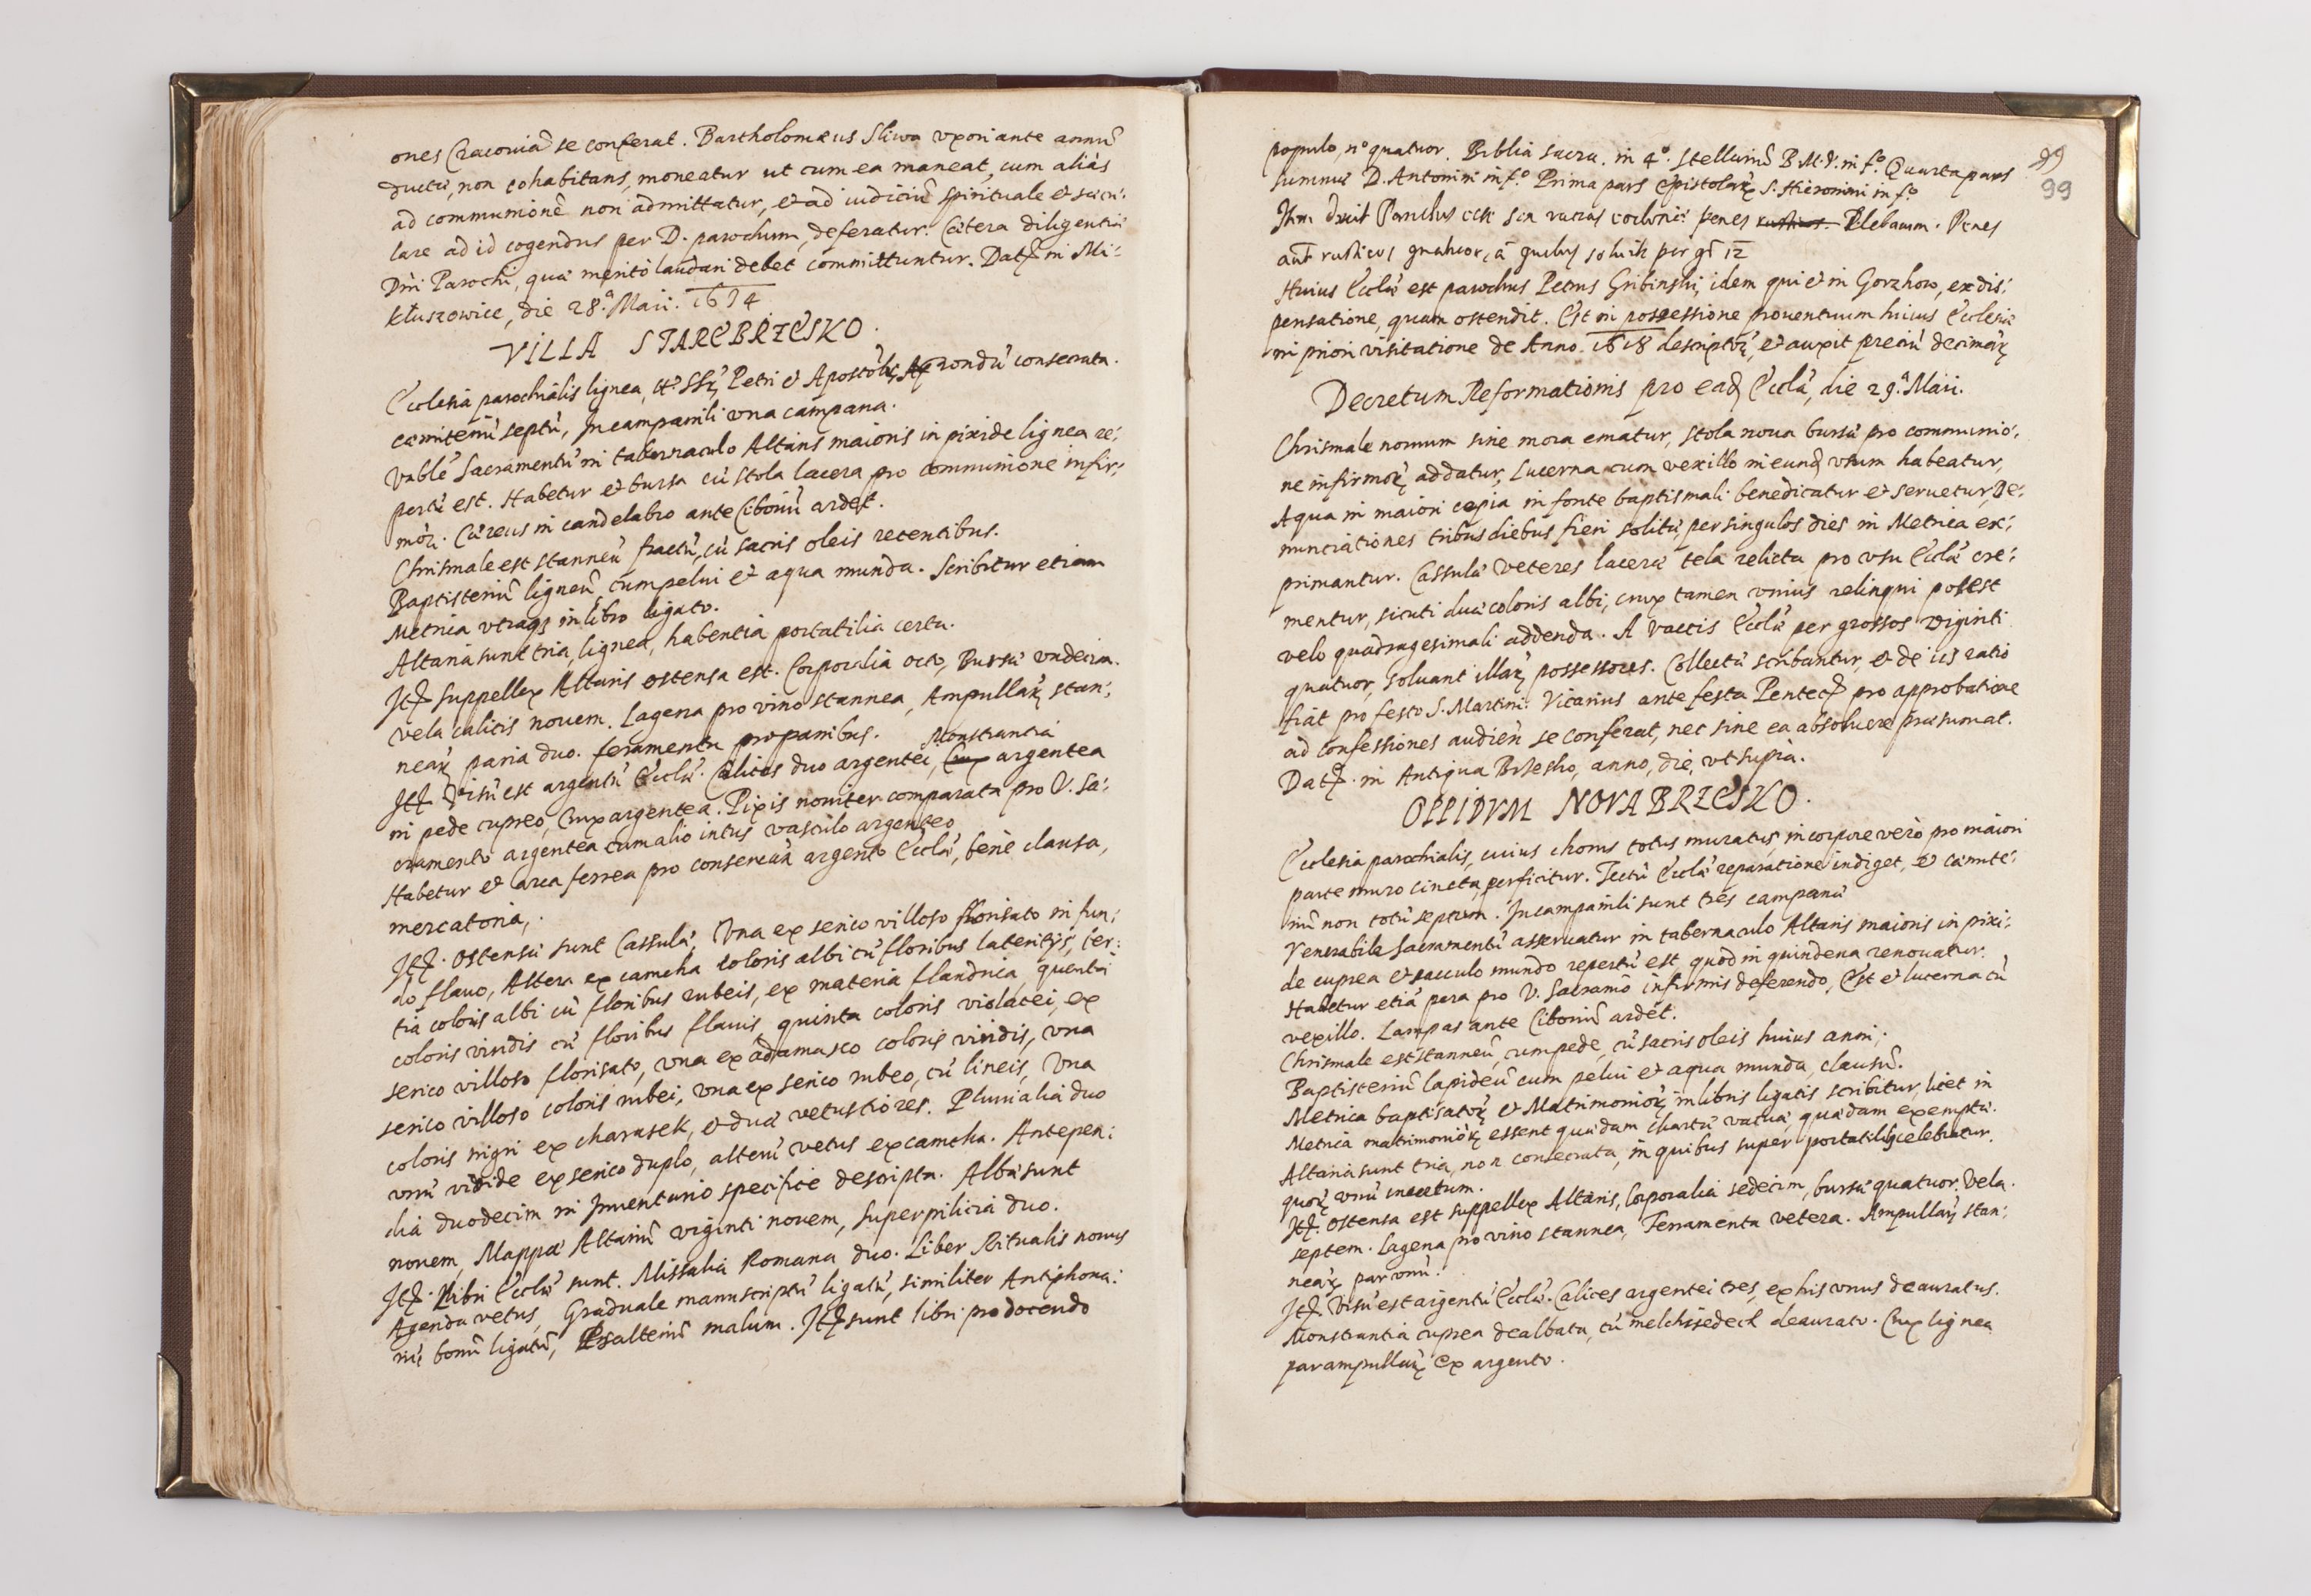 ones Cracouiã se conferat. Bartholomæus Sliwa vxori ante annũ
ductæ, non cohabitans, moneatur ut cum ea maneat, cum aliàs
ad communionẽ non admittatur, et ad iudiciũ spirituale et sæcu:
lare ad id cogendus per D. parochum, deferatur. Cætera diligentiæ
Dñi Parochi, quæ meritò laudari debet committuntur. Datꝭ in Mi:
kłuszowice, die 28.ª Maii. 1614
VILLA STAREBRZESKO.
Ecclesia parochialis lignea, tt.º SSꝝ Petri et Apostolꝝ nondũ consecrata.
cæmiteriũ septũ, In campanili vna campana.
Vnblẽ Sacramentũ in tabernaculo Altaris maioris in pixide lignea re:
pertũ est. Habetur et bursa cũ stola lacera pro communione infir:
morꝝ. Cæreus in candelabro ante Ciboriũ ardet.
Chrismale est stanneũ fractũ, cũ sacris oleis recentibus.
Baptisteriũ ligneũ, cum pelui et aqua munda. Scribitur etiam
Metrica vtraqꝫ in libro ligato.
Altaria sunt tria, lignea, habentia portatilia certa.
Itꝭ suppellex Altaris ostensa est. Corporalia octo, Bursæ vndecim.
vela calicis nouem. Lagena pro vino stannea, Ampullarꝝ stan:
nearꝝ paria duo. feramenta pro panibus. Monstrantia
Itꝭ Visũ est argentũ Ecclæ. Calices duo argentei, Crux argentea
in pede cupreo, Crux argentea. Pixis nouiter comparata pro V. Sa:
cramento argentea cum alio intus vasculo argenteo
Habetur et arca ferrea pro conseruañ argento Ecclæ, benè clausa,
mercatoria,.
Itꝭ. Ostensæ sunt Cassulæ, Vna ex serico villoso florisato in fun:
do flauo, Altera ex camcha coloris albi cũ floribus lateritijs, ter:
tia coloris albi cũ floribus rubeis, ex materia flandrica, quarta
coloris viridis cũ floribus flauis, quinta coloris violacei, ex
serico villoso florisato, vna ex adamasco coloris viridis, vna
serico villoso coloris rubei, vna ex serico rubeo, cũ lineis, Vna
coloris nigri ex charasek, et duæ vetustiores. Pluuialia duo
vnũ viride ex serico duplo, alterũ vetus ex camcha. Antepen:
dia duodecim in Inuentario specificè descripta. Albæ sunt
nouem, Mappæ Altariũ viginti nouem, superpilicia duo.
Itꝭ. Libri Ecclæ sunt. Missalia Romana duo. Liber Ritualis nouus
Agenda vetus, Graduale manuscriptũ ligatũ, similiter Antiphona:
riũ bonũ ligatũ, Psalteriũ malum. Itꝭ sunt libri pro docendo
99
99
populo, nº quatuor. Biblia sacra. in 4º. Stellariũ B.M.V. in fº. Quarta pars
summæ D. Antonini in fº. Prima pars Epistolarꝝ S. Hieronimi in fº
Itm dixit Parochus penes rusticos. Plebanum. Penes
aũt rusticos quatuor, à quibus soluit per gř 12
Huius Ecclæ est parochus Petrus Gribinski, idem qui et in Gorzhow, ex dis:
pensatione, quam ostendit. Est in possessione prouentuum huius Ecclesiæ
in priori visitatione de Anno. 1618 descriptorꝝ, et auxit preciũ decimarꝝ
Decretum Reformationis pro eadꝭ Ecclã, die 29.ª Maii.
Chrismale nouum sine mora ematur, stola noua bursæ pro communio:
ne infirmorꝝ addatur, Lucerna cum vexillo in eundꝭ vsum habeatur,
Aqua in maiori copia in fonte baptismali benedicatur et seruetur, De:
nunciationes tribus diebus fieri solitæ, per singulos dies in Metrica ex:
primantur. Cassulæ veteres laceræ tela relicta pro vsu Ecclæ cre:
mentur, sicuti duæ coloris albi, crux tamen vnius relinqui posset
velo quadragesimali addenda. A vaccis Ecclæ per grossos viginti
quatuor, soluant illarꝝ possessores. Collectæ scribantur, et de iis ratio
fiat pro festo S. Martini. Vicarius ante festa Pentecꝭ pro approbatione
ad confessiones audieñ se conferat, nec sine ea absoluere præsumat.
Datꝭ. in Antiqua Brzesko, anno, die, vt suprà.
OPPIDVM NOVA BRZESKO.
Ecclesia parochialis, cuius chorus totus muratus, in corpore verò pro maiori
parte muro cincta, perficitur. Tectũ Ecclæ reparatione indiget, et cæmite:
riũ non totũ septum. In campanili sunt tres campanæ
Venerabile Sacramentũ asseruatur in tabernaculo Altaris maioris in pixi:
de cuprea et sacculo mundo repertũ est, quòd in quindena renouatur.
Habetur etiã pera pro V. Sacramõ infirmis deferendo, Est et lucerna cũ
vexillo. Lampas ante Ciboriũ ardet.
Chrismale est stanneũ, cum pede, cũ sacris oleis huius anni.
Baptisteriũ lapideũ cum pelui et aqua munda, clausũ.
Metrica baptisatorꝝ et Matrimoniorꝝ in libris ligatis scribitur, licet in
Metrica matrimoniorꝝ essent quædam chartæ vacuæ, quædam exemptæ.
Altaria sunt tria, non consecrata, in quibus super portatilibus celebratur.
quorꝝ vnũ incertum.
Itꝭ. Ostensa est suppellex Altaris, Corporalia sedecim, bursæ quatuor. Vela.
septem. Lagena pro vino stannea, Ferramenta vetera. Ampullarꝝ stan:
nearꝝ par vnũ.
Itꝭ. Visũ est argentũ Ecclæ. Calices argentei tres, ex his vnus deauratus.
Monstrantia cuprea dealbata, cũ melchisedech deaurato. Crux lignea
par ampullarꝝ ex argento.